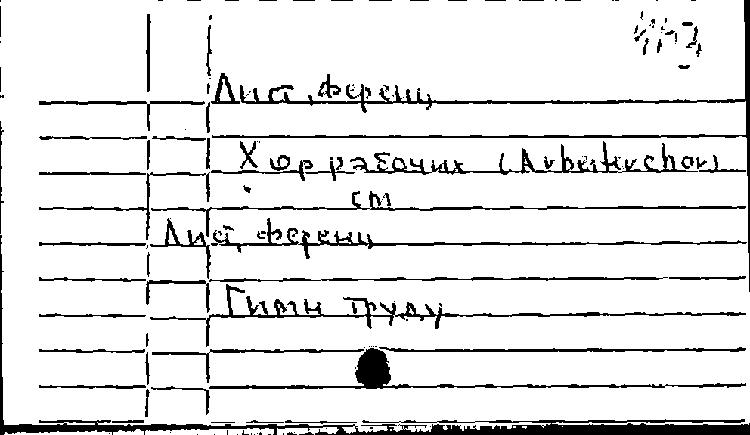 Лист, Ференц
Хор рабочих (Arbeiterchor)
см
Лист, Ференц
Гимн труду